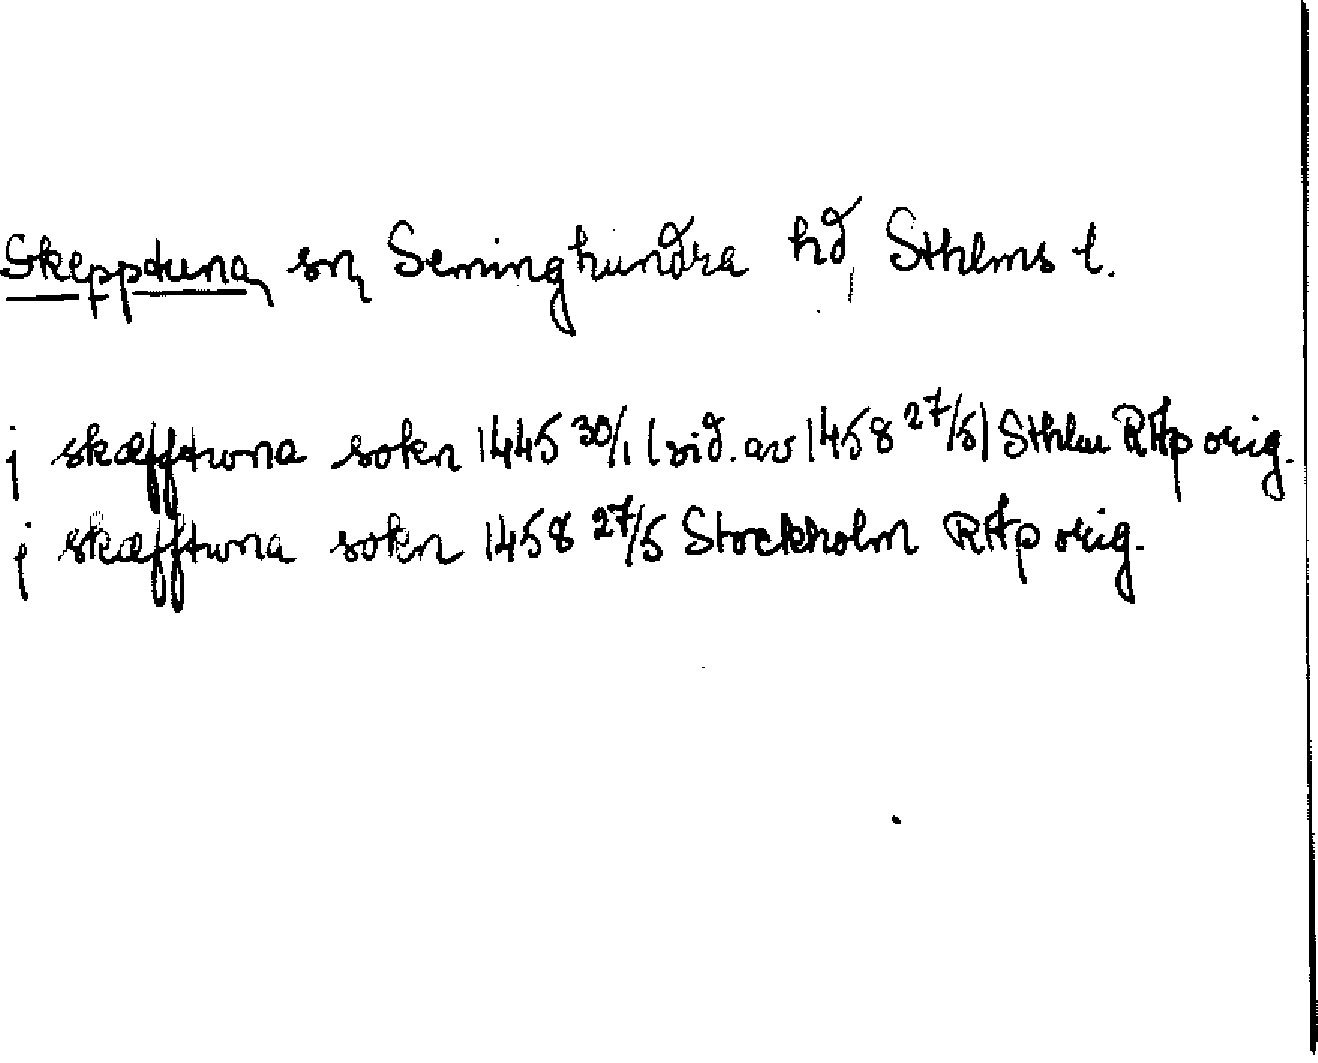 Skepptuna sn, Seminghundra hd, Sthlms l.
j skæfftwna sokn 1445 30/1 (vid. av 1458 27/5) Sthlm RAp orig.
j skæfftwna sokn 1458 27/5 Stockholm RAp orig.